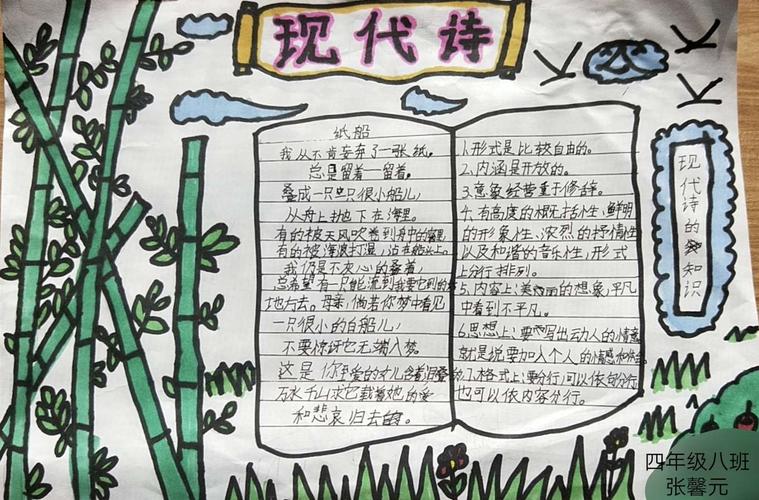 现代诗
纸船
我从不肯妄弃了一张纸。
总是留着—留着,
叠成一只只很小船儿,
从舟上抛下在海里。
有的被天风吹卷到舟中的窗里
有的被海浪打湿,沾在船头上。
我仍是不灰心的叠着,
总希望有一只能流到我要它到的
地方去。母亲,倘若你梦中看见
一只很小的白船儿,
不要惊讶它无端入梦。
这是你至爱的女儿含着泪叠的
万水千山求它载着她的爱
和悲哀归去。
1.形式是比较自由的。
2.内涵是开放的。
3.意象经营重于修辞。
4.有高度的概括性,鲜明
的形象性,浓烈的抒情性
以及和谐的音乐性,形式
上分行排列。
5.内容上:美的想象,平凡
中看到不平凡。
6.思想上:要写出动人的情意
就是说要加入个人的情感和
7.格式上:要分行,可以依句分行
也可以依内容分行。
现代诗的知识
四年级八班
张馨元